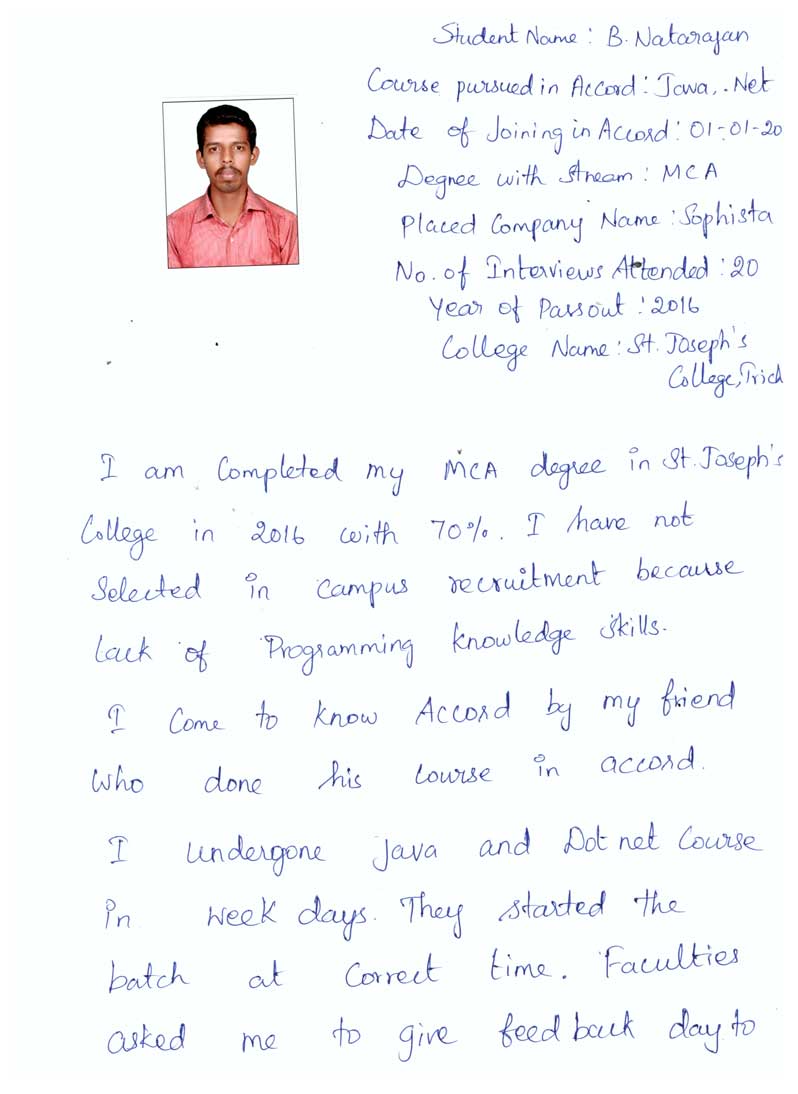 Student Name: B. Natarajan
Course pursued in Accord: Java, .Net
Date of Joining in Accord: 01-01-20
Degree with Stream: MCA
Placed Company Name: Sophista
No. of Interviews Attended: 20
Year of Passout: 2016
College Name: St. Joseph's
College, Trich
I am Completed my MCA degree in St. Joseph's
College in 2016 with 70%. I have not
Selected in campus recruitment because
lack of Programming knowledge skills.
I Come to know Accord by my friend
who done his course in accord.
I undergone Java and Dot net Course
in week days. They started the
batch at Correct time. Faculties
asked me to give feed back day to